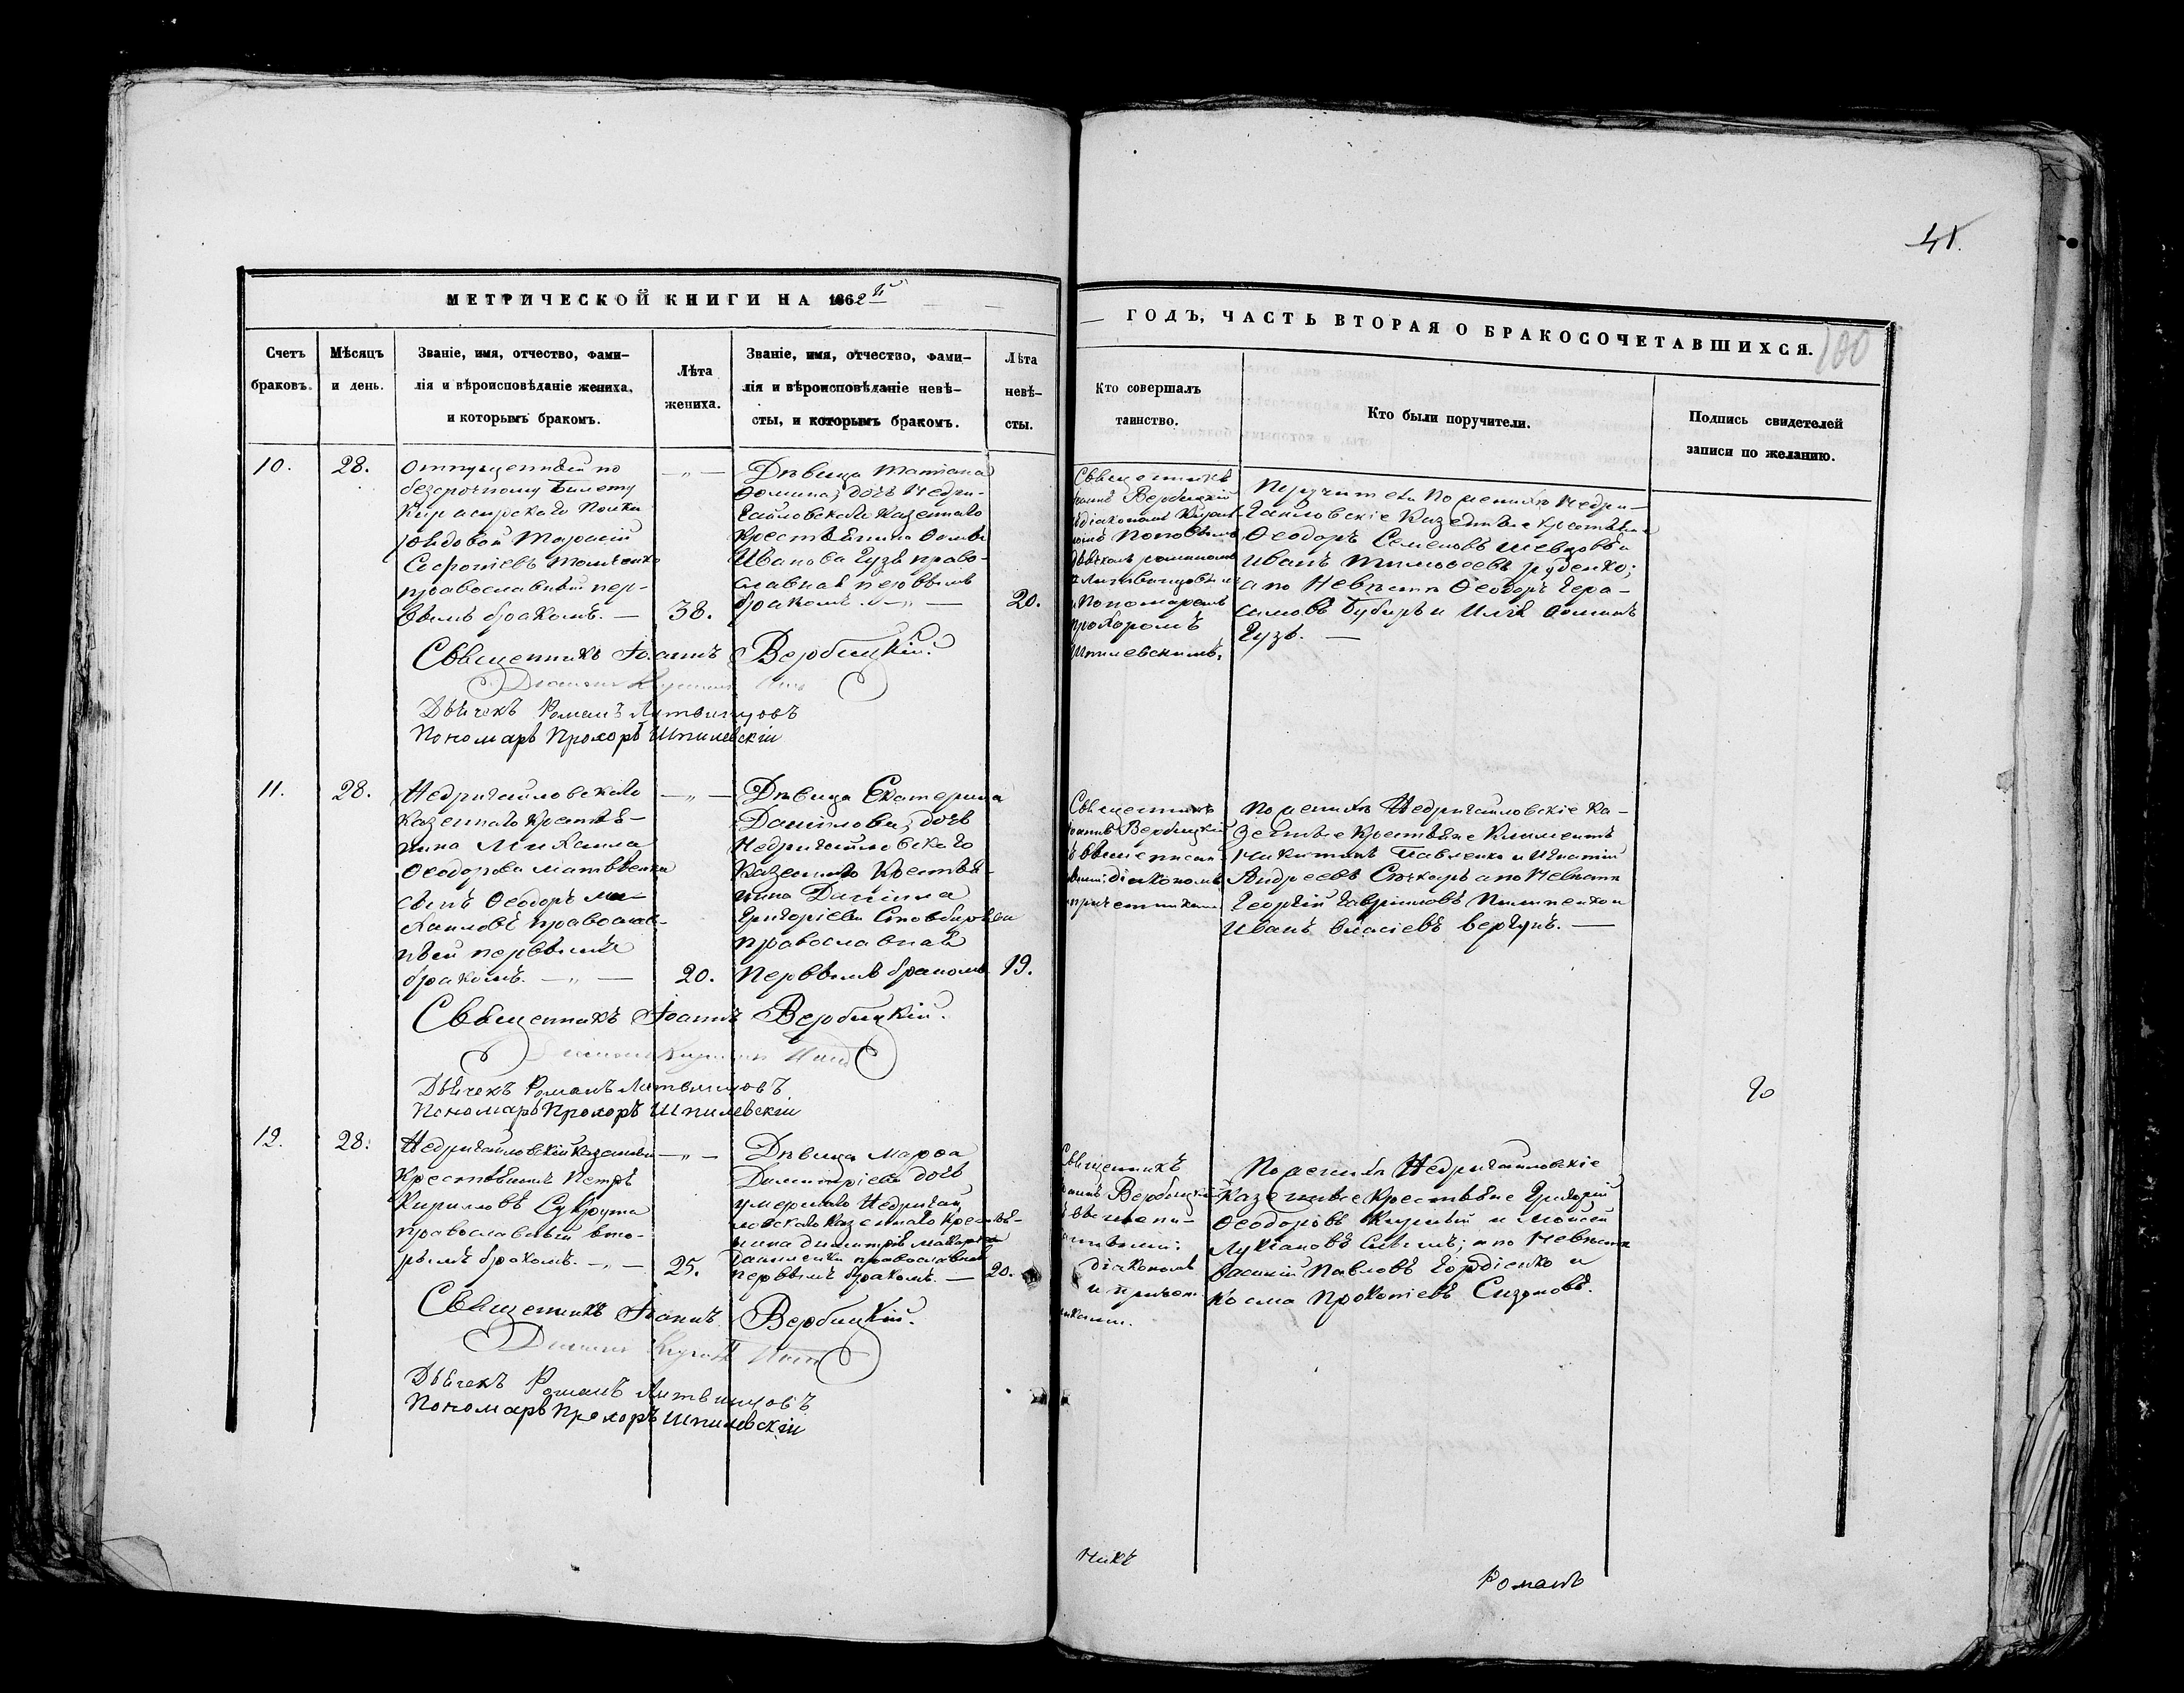 41.
МЕТРИЧЕСКОЙ КНИГИ НА 1862й
ГОДЪ, ЧАСТЬ ВТОРАЯ О БРАКОСОЧЕТАВШИХСЯ.
100
Счетъ
браковъ.
Мѣсяцъ
и день.
Званіе, имя, отчество, фами-
лія и вѣроисповѣданіе жениха,
и которымъ бракомъ.
Лѣта
жениха.
Званіе, имя, отчество, фами-
лія и вѣроисповѣданіе невѣ-
сты, и которымъ бракомъ.
Лѣта
невѣ-
сты.
Кто совершалъ
таинство.
Кто были поручители.
Подпись свидетелей
записи по желанію.
10.
28.
Отпущенный по
безсрочному билету
Кирасирскаго Полка
рядовой Тарасій
Софроніевъ
православный пер-
вымъ бракомъ. —
38.
Дѣвица Татіана
Ѳомина, дочь Недри-
гайловскаго казеннаго
крестьянина Ѳомы
Иванова Гузя право-
славная первымъ
бракомъ. — „ —
20.
Священникъ
Іоаннъ Вербицкій
діакономъ
Поповымъ
дьячкомъ романомъ
Литвинцовымъ
и Пономаремъ
прохоромъ
Шпилевскимъ.
Поручители По женихѣ Недри-
гайловскіе Казенные крестьяне
Ѳеодоръ Семеновъ Шевцовъ и
Иванъ Тимоѳеевъ Руденко;
а по Невѣстѣ Ѳеодоръ Гера-
симовъ Бубыръ и Илія Ѳоминъ
Гузь. —
Священникъ Іоаннъ Вербицкій.
Діаконъ
Дьячекъ Романъ Литвинцовъ
Пономарь Прохоръ Шпилевскій
11.
28.
Недригайловскаго
казеннаго крестья-
нина Михаила
Ѳеодорова Матвѣенка
сынъ Ѳеодоръ Ми-
хаиловъ православ-
ный первымъ
бракомъ. — „ —
20.
Дѣвица Екатерина
Даніилова, дочь
Недригайловскаго
казеннаго крестья-
нина Даніила
Григоріева
православная
первымъ бракомъ
19.
Священникъ
Іоаннъ Вербицкій
діакономъ
По женихѣ Недригайловскіе Ка-
зенные крестьяне Климентъ
Никитинъ Павленко и Игнатій
Андреевъ Слюсарь а по Невѣстѣ
Георгій Гавриловъ Пилипенко и
Иванъ Власіевъ Вергунъ. —
Священникъ Іоаннъ Вербицкій.
Дьячекъ Романъ Литвинцовъ
Пономарь Прохоръ Шпилевскій
12.
28.
Недригайловскій казенный
крестьянинъ Петръ
Кирилловъ Сукрута
православный вто-
рымъ бракомъ. — „ —
25.
Дѣвица Марѳа
Димитріева дочь
умершаго Недригай-
ловскаго казеннаго крестья-
нина Димитрія Макарова
Даниленка православная
первымъ бракомъ. —
20.
Священникъ
Іоаннъ Вербицкій
діакономъ
и причет-
никами.
По женихѣ Недригайловскіе
казенные крестьяне Григорій
Ѳеодоровъ и Моисей
Лукіановъ а по Невѣстѣ
Василій Павловъ Гордіенко и
Косма Прокопіевъ Сизоновъ.
Священникъ Іоаннъ Вербицкій.
Діаконъ
Дьячекъ Романъ Литвинцовъ
Пономарь Прохоръ Шпилевскій
никъ
Романъ